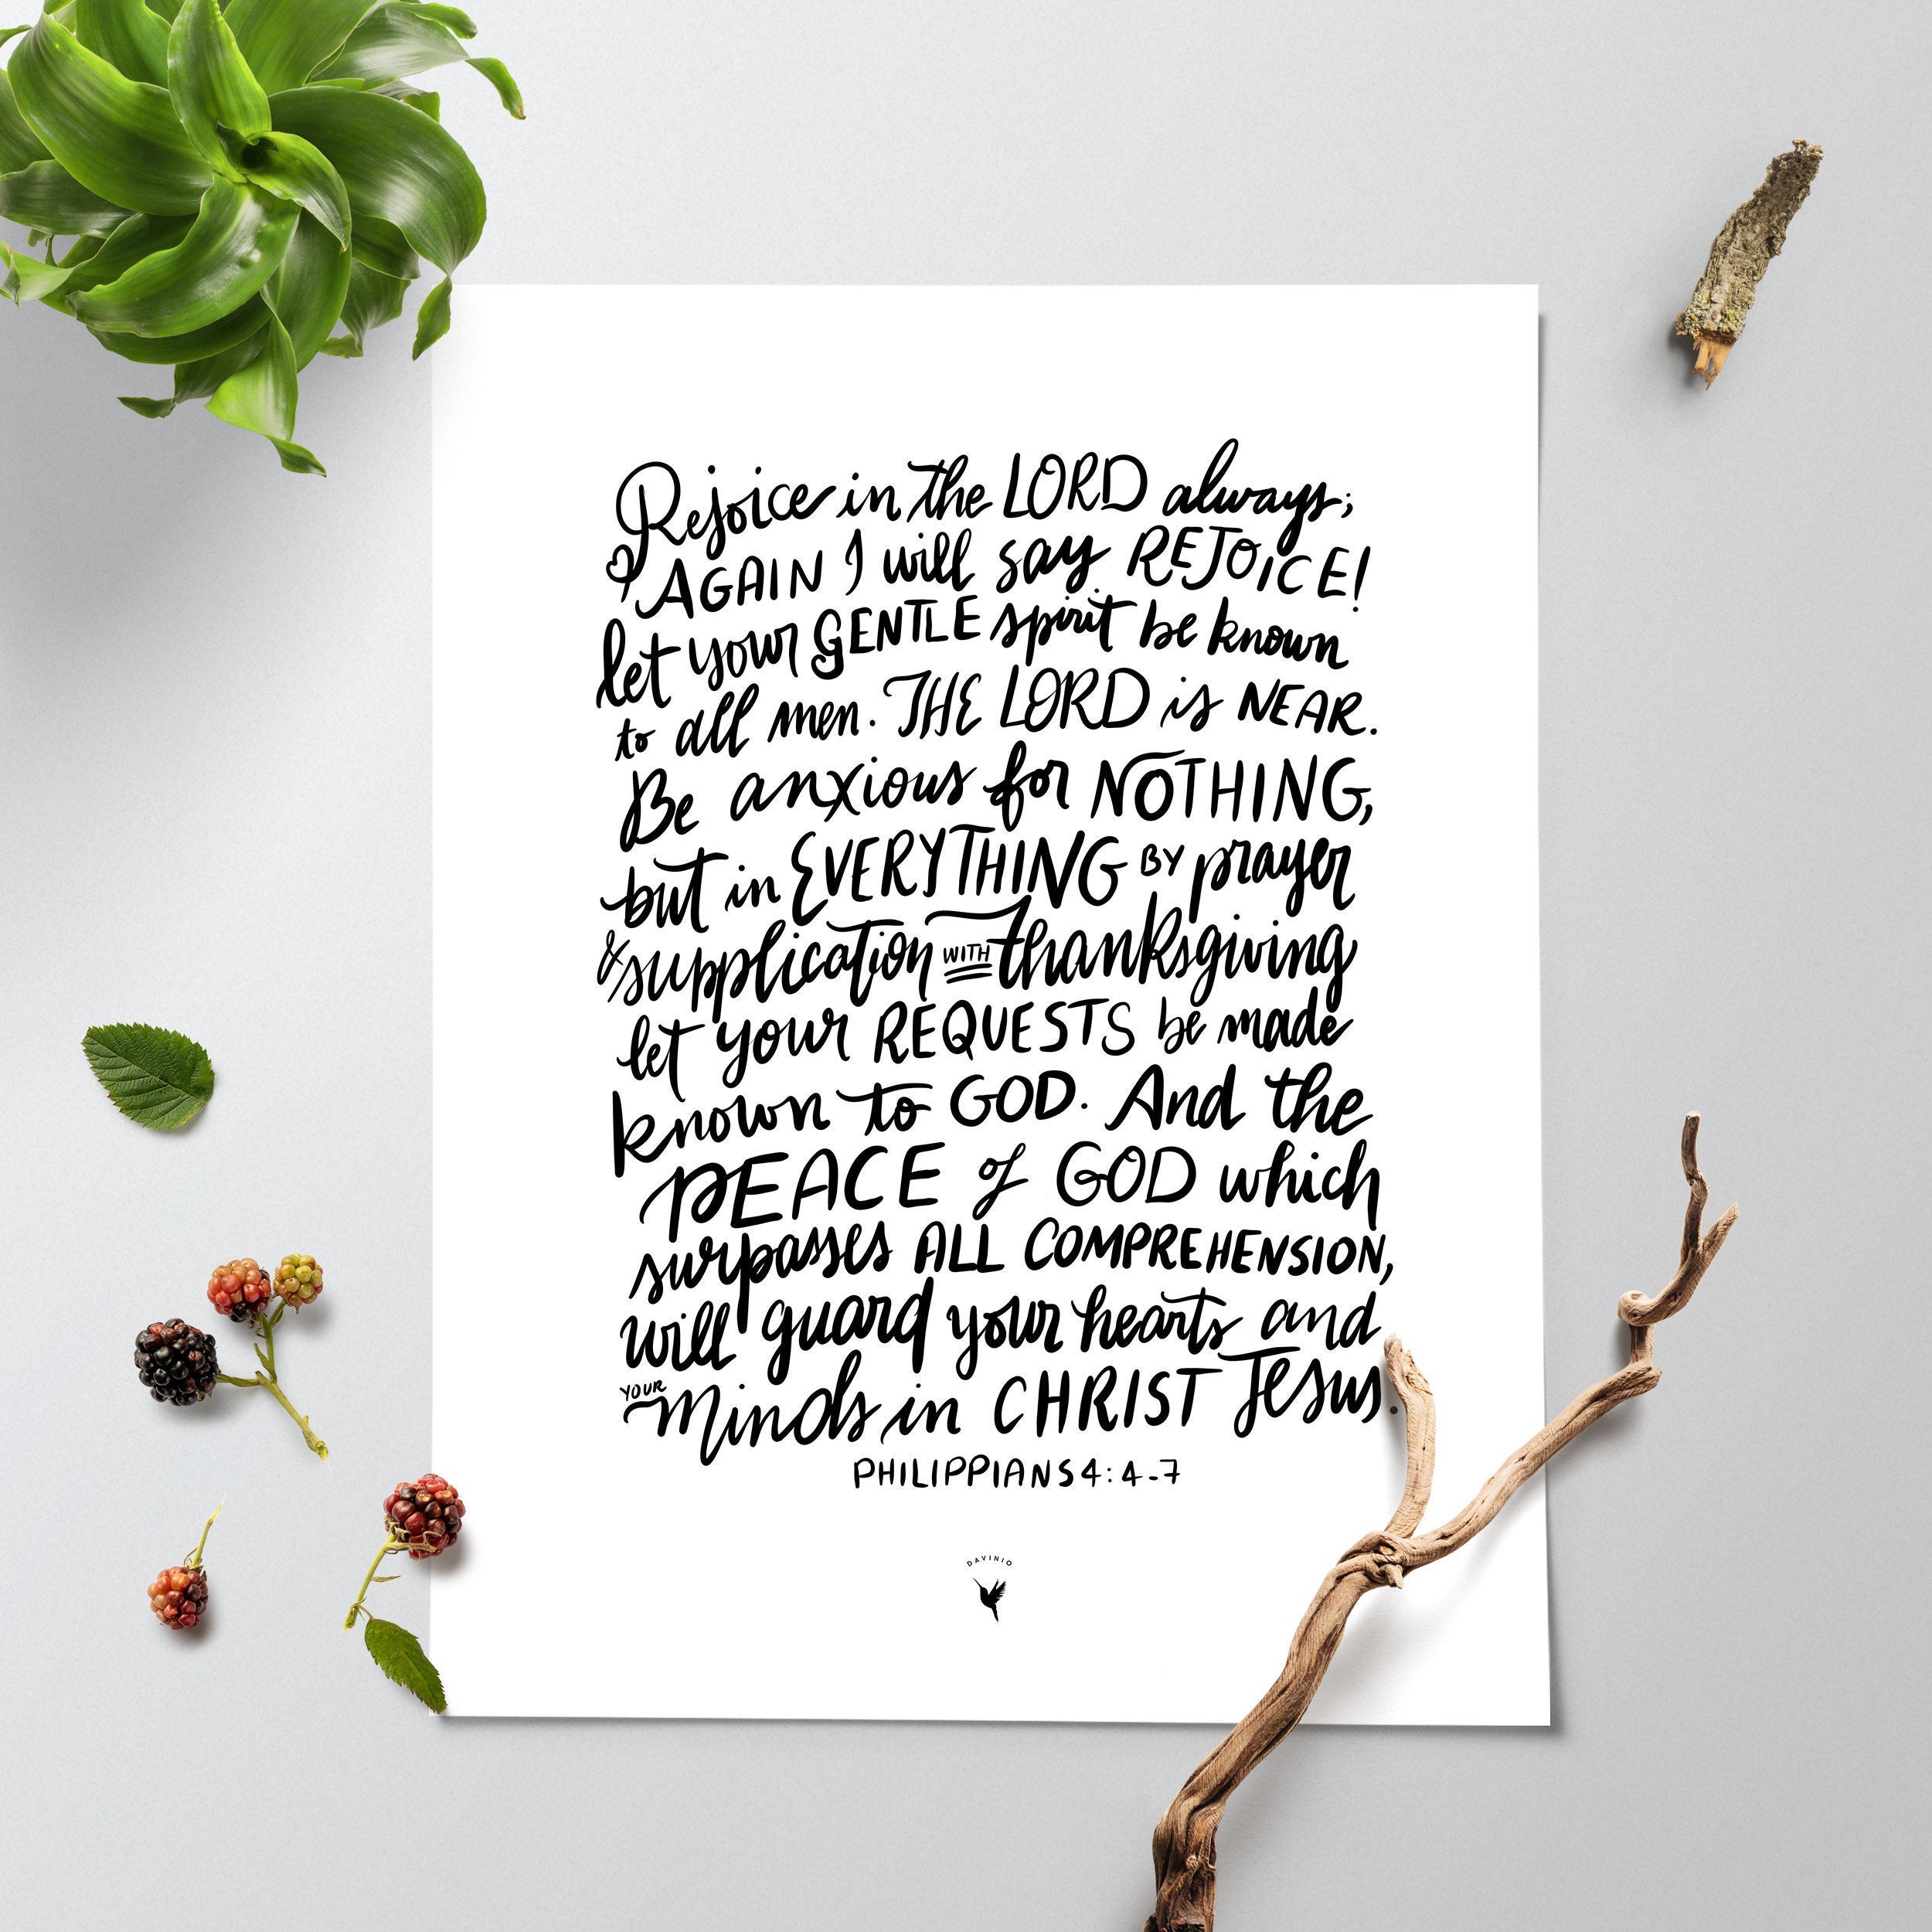 Rejoice in the LORD always;
AGAIN I will say REJOICE!
let your GENTLE spirit be known
to all men. THE LORD is NEAR.
Be anxious for NOTHING,
but in EVERYTHING BY prayer
& supplication WITH thanksgiving
let your REQUESTS be made
known to GOD. And the
PEACE of GOD which
surpasses ALL COMPREHENSION,
will guard your hearts and
YOUR minds in CHRIST Jesus.
PHILIPPIANS 4:4-7
DAVINIO